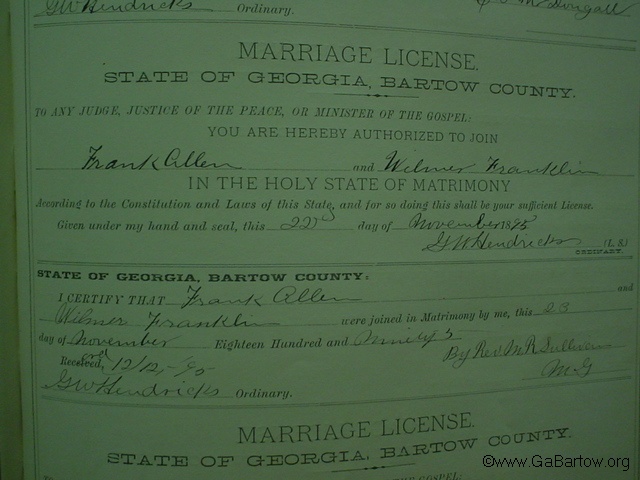 GWHendricks Ordinary.
MARRIAGE LICENSE.
STATE OF GEORGIA, BARTOW COUNTY.
TO ANY JUDGE, JUSTICE OF THE PEACE, OR MINISTER OF THE GOSPEL:
YOU ARE HEREBY AUTHORIZED TO JOIN
Frank Allen and Wilmer Franklin
IN THE HOLY STATE OF MATRIMONY
According to the Constitution and Laws of this State, and for so doing this shall be your sufficient License.
Given under my hand and seal, this 22nd day of November 1895
GWHendricks (L.S.)
ORDINARY.
STATE OF GEORGIA, BARTOW COUNTY:
I CERTIFY THAT Frank Allen and
Wilmer Franklin were joined in Matrimony by me, this 23
day of November Eighteen Hundred and Ninety 5
Received, 12/12/95 By Rev. M R Sullivan
GWHendricks Ordinary. M.G
MARRIAGE LICENSE.
STATE OF GEORGIA, BARTOW COUNTY.
©www.GaBartow.org